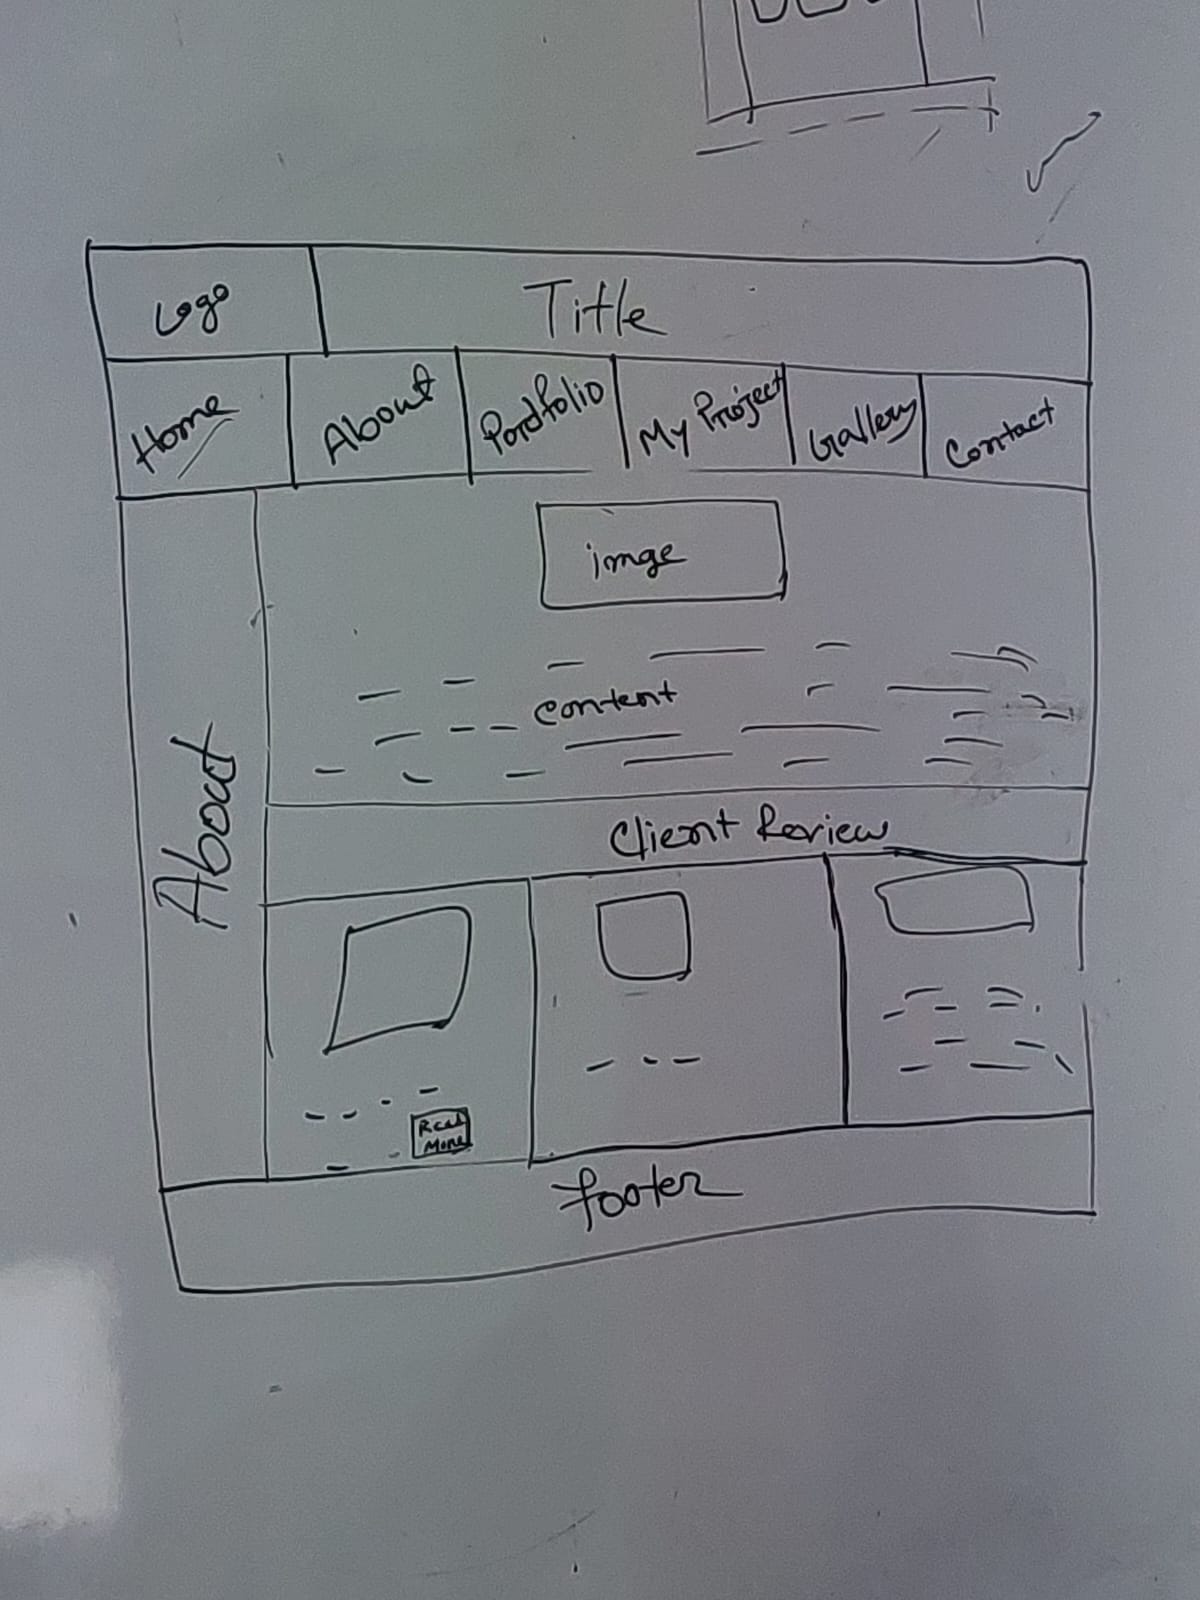 Logo
Title
Home
About
Portfolio
My Project
Gallery
Contact
imge
content
About
Client Review
Read
More
footer